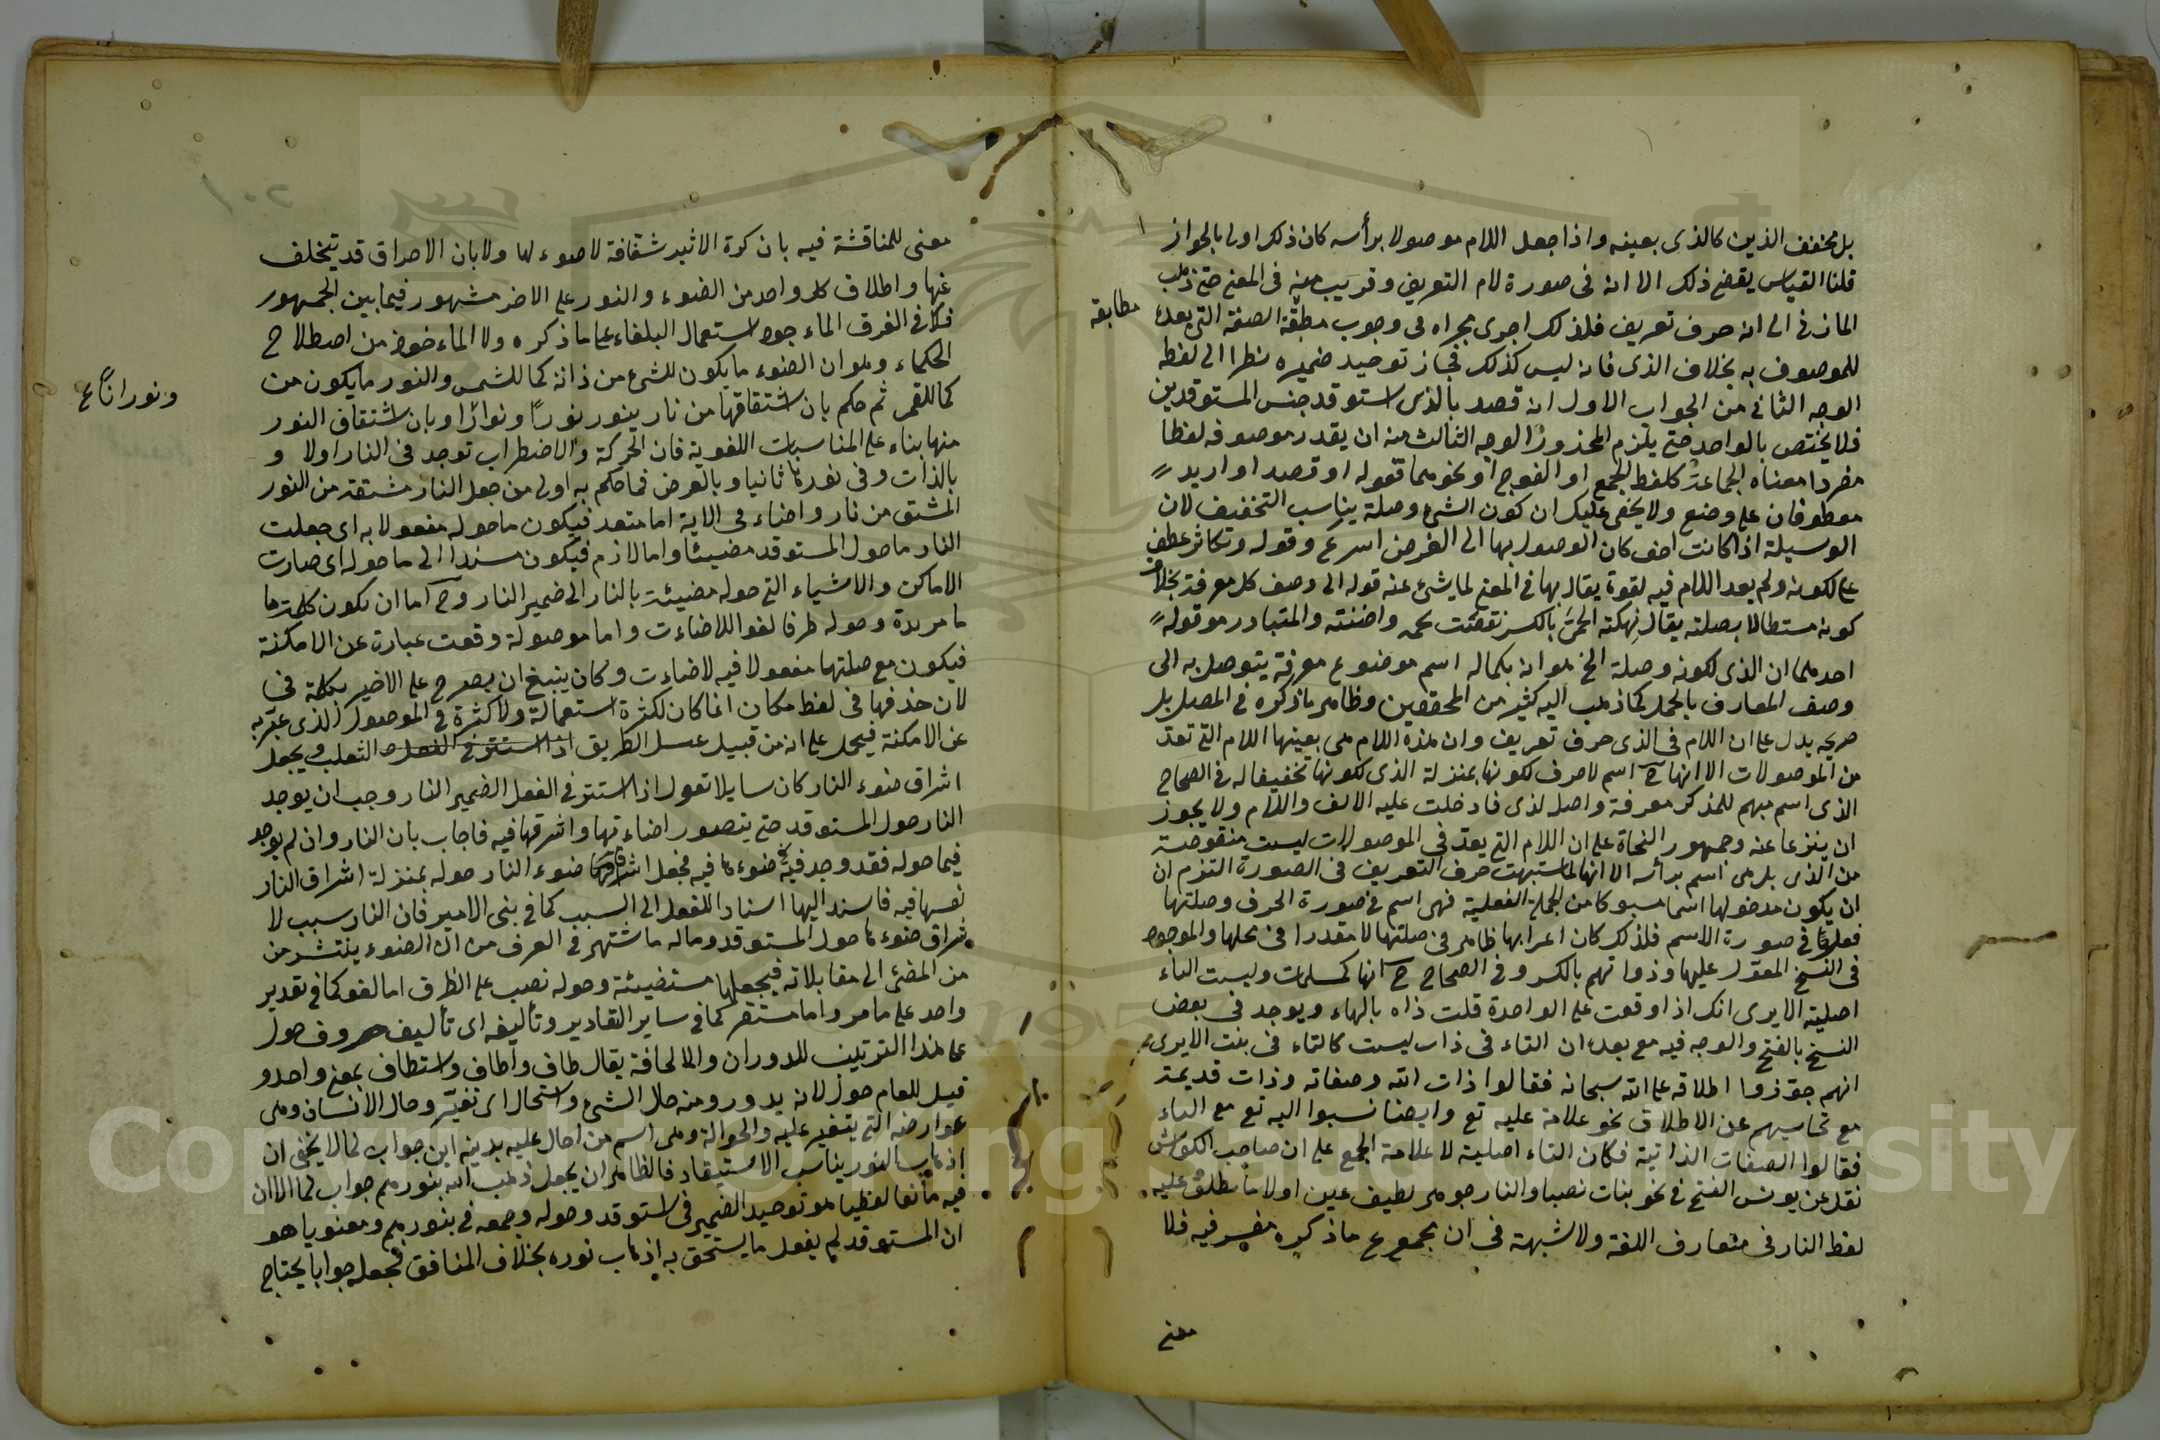 بل مخفف الذين كالذى بعينه واذا جعل اللام موصولا برأسه كان ذلك اولى بالجواز
قلنا القياس يقتضى ذلك الا انه فى صورة لام التعريف وقريب منه فى المعنى حتى ذهب
المازنى الى انه حرف تعريف فلذلك اجرى مجراه فى وجوب مطابقة الصفة التى بعده
مطابقة
للموصوف به بخلاف الذى فانه ليس كذلك فجاز توحيد ضميره نظرا الى لفظه
الوجه الثانى من الجواب الاول انه قصد بالذى استوقد جنس المستوقدين
فلا يختص بالواحد حتى يلزم المحذور الوجه الثالث منه ان يقدر موصوفه لفظا
مفردا معناه الجماعة كلفظ الجمع او الفوج او نحوهما فقوله او قصد او اريد
معطوفان على وضع ولا يخفى عليك ان كون الشئ وصلة يناسب التخفيف لان
الوسيلة اذا كانت اخف كان الوصول بها الى الغرض اسرع وقوله وتكاثر عطف
على لكونه ولم يعد اللام فيه لقوة يقال بها فى المعنى لما ينبئ عنه قوله الى وصف كل معرفة بخلاف
كونه مستطالا بصلته يقال نهكته الحمى بالكسر نقصت لحمه واضنته والمتبادر من قوله
احدهما ان الذى لكونه وصلة الخ هو انه بكماله اسم موضوع معرفة يتوصل به الى
وصف المعارف بالجمل كما ذهب اليه كثير من المحققين وظاهر ما ذكره فى المفصل بل
صريحه يدل على ان اللام فى الذى حرف تعريف وان هذه اللام هى بعينها اللام التى تعد
من الموصولات الا انها ح اسم لا حرف لكونها بمنزلة الذى لكونها تخفيفا له فى الصحاح
الذى اسم مبهم للمذكر معرفة واصله لذى فادخلت عليه الالف واللام ولا يجوز
ان ينزعا عنه وجمهور النحاة على ان اللام التى يعد فى الموصولات ليست منقوصة
من الذى بل هى اسم برأسه الا انها لما اشبهت حرف التعريف فى الصورة التزم ان
ان يكون مدخولها اسما مسبوكا من الجملة الفعلية فهى اسم فى صورة الحرف وصلتها
فعل فى صورة الاسم فلذلك كان اعرابها ظاهر فى صلتها لا مقدرا فى محلها والموجود
فى النسخ المعول عليها وذواتهم بالكسر وفى الصحاح ح انها كمسلمات وليست التاء
اصلية الا يرى انك اذا وقفت على الواحدة قلت ذاه بالهاء ويوجد فى بعض
النسخ بالفتح والوجه فيه مع بعده ان التاء فى ذات ليست كالتاء فى بنت الا يرى
انهم جوزوا اطلاقه على الله سبحانه فقالوا ذات الله وصفاته وذات قديمة
مع تحاشيهم عن الاطلاق نحو علامة عليه تع وايضا نسبوا اليه تع مع التاء
فقالوا الصفات الذاتية فكان التاء اصلية لا علامة الجمع على ان صاحب الكواش
نقل عن يونس الفتح فى نحو بنات نصبا والنار جوهر لطيف عين اولا ما يطلق عليه
لفظ النار فى متعارف اللغة ولا شبهة فى ان مجموع ما ذكره مفسر فيه فلا
معنى
معنى للمناقشة فيه بان كرة الاثير شفافة لا ضوء لها ولا بان الاحراق قد يتخلف
عنها واطلاق كل واحد من الضوء والنور على الاخر مشهور فيما بين الجمهور
فلا فى الفرق الماء جوه استعمال البلغاء على ما ذكره ولا الماء خوذ من اصطلاح
الحكماء وهو ان الضوء ما يكون للشئ من ذاته كما للشمس والنور ما يكون من
كما للقمر ثم حكم بان اشتقاقها من نار ينور نورا ونوارا وبان اشتقاق النور
ونورانا ع
منها بناء على المناسبات اللغوية فان الحركة والاضطراب توجد فى النار اولا و
بالذات وفى نورها ثانيا وبالعرض فما حكم به اولى من جعل النار مشتقة من النور
المشتق من نار واضاء فى الاية اما متعد فيكون ما حوله مفعولا به اى جعلت
النار ما حول المستوقد مضيئا واما لازم فيكون مسندا الى ما حوله اى صارت
الاماكن والاشياء التى حوله مضيئة بالنار الى ضمير النار وح اما ان يكون كلمة ما
ما مزيدة وحوله ظرفا لغوا لاضاءت واما موصولة وقعت عبارة عن الامكنة
فيكون مع صلتها مفعولا فيه لاضاءت وكان ينبغى ان يصرح على الاخير بكلمة فى
لان حذفها فى لفظ مكان انما كان لكثرة استعماله ولا كثرة فى الموصول الذى عبر به
عن الامكنة فيحمل على انه من قبيل عسل الطريق اذا استتر فى الفعل الثعلب ويجعل
اشراق ضوء النار كان سايلا تقول اذا استتر فى الفعل الضمير النار وجب ان يوجد
النار حول المستوقد حتى يتصور اضاءتها واشراقها فيه فاجاب بان النار وان لم يوجد
فيما حوله فقد وجد فيه ضوءها فيه فجعل اشراق ضوء النار حوله بمنزلة اشراق النار
نفسها فيه فاسند اليها اسنادا للفعل الى السبب كما فى بنى الامير فان النار سبب لا
شراق ضوءها حول المستوقد وماله ما اشتهر فى العرف من ان الضوء ينتشر من
من المضئ الى مقابلاته فيجعلها مستضيئة وحوله نصب على الظرف اما لغو كما فى تقدير
واحد على ما مر واما مستقر كما فى ساير التقادير وتأليفه اى تأليف حروف حول
على هذا الترتيب للدوران والاحافة يقال طاف واطاف واستطاف بمعنى واحد و
قيل للعام حول لانه يدور ومنه حال الشئ واستحال اى تغير وحال الانسان وهى
عوارضه التى يتغير عليه والحوالة وهى اسم من احال عليه بدينه اين جواب لما لا يخفى ان
اذهاب النور يناسب الاستيقاد فالظاهر ان يجعل ذهب الله بنورهم جواب لما الا ان
فيه مانعا لفظيا هو توحيد الضمير فى استوقد وحوله وجمعه فى بنورهم ومعنويا هو
ان المستوقد لم يفعل ما يستحق به اذهاب نوره بخلاف المنافق فجعله جوابا يحتاج